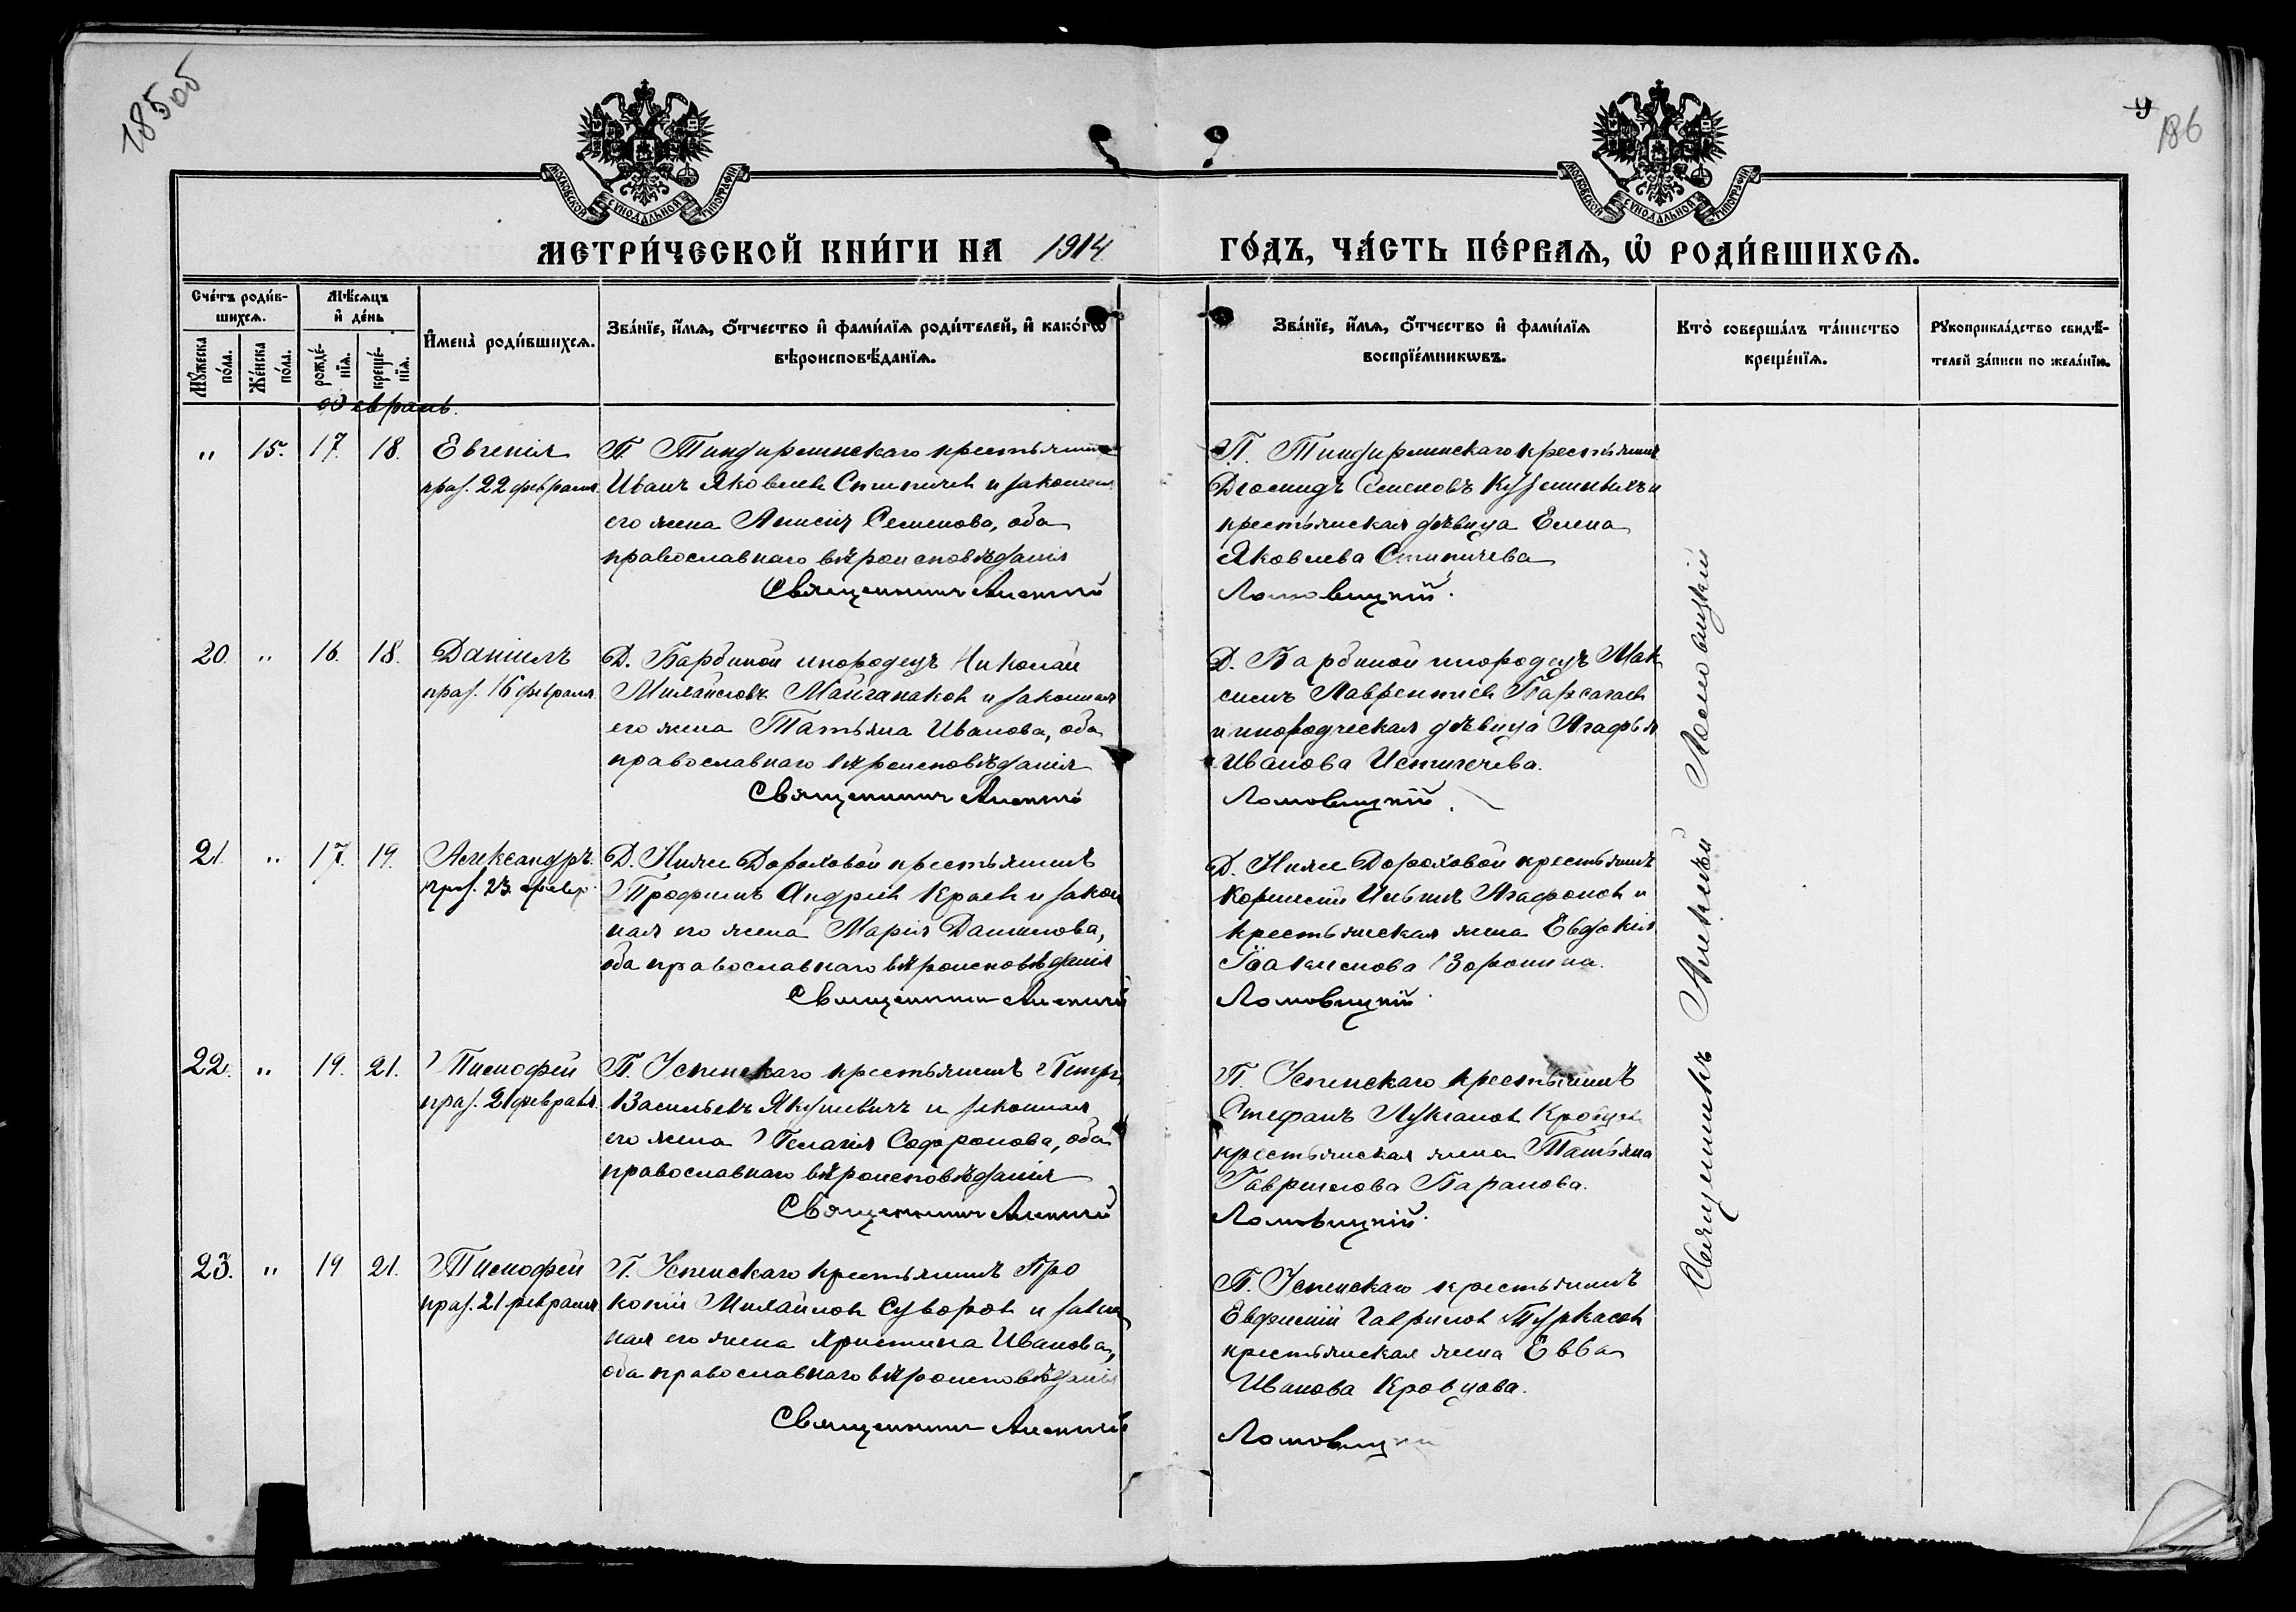 185 об
9
186
МОСКОВСКОЙ СѴНОДАЛЬНОЙ ТИПОГРАФІИ
МОСКОВСКОЙ СѴНОДАЛЬНОЙ ТИПОГРАФІИ
МЕТРИ́ЧЕСКОЙ КНИ́ГИ НА 1914 ГО́ДЪ, ЧА́СТЬ ПЕ́РВАѦ, Ѡ҆ РОДИ́ВШИХСѦ.
Сче́тъ роди́в-
шихсѧ.
Мꙋ́жеска по́ла.
Же́нска по́ла.
Мѣ́сѧцъ
и҆ де́нь
рожде́-
нїѧ.
креще́-
нїѧ.
И҆мена̀ роди́вшихсѧ.
Зва́нїе, и҆́мѧ, ѻ҆́тчество и҆ фами́лїѧ роди́телей, и҆ како́гѡ
вѣроисповѣ́данїѧ.
Зва́нїе, и҆́мѧ, ѻ҆́тчество и҆ фами́лїѧ
воспрїе́мникѡвъ.
Кто̀ соверша́лъ та́инство
креще́нїѧ.
Рꙋкоприкла́дство свидѣ́-
телей за́писи по жела́нїю.
Февраль.
" 15. 17. 18. Евгенія
праз. 22 февраля.
П. Тиндирлинскаго крестьянинъ
Иванъ Яковлевъ и законная
его жена Анисія Семенова, оба
православнаго вѣроисповѣданія
Священникъ Алексій
П. Тиндирлинскаго крестьянинъ
Діомидъ Семеновъ и
крестьянская дѣвица Елена
Яковлева
Ломовицкій.
20. " 16. 18. Даніилъ
праз. 16 февраля.
Д. Барбиной инородецъ Николай
Михайловъ Майганаковъ и законная
его жена Татьяна Иванова, оба
православнаго вѣроисповѣданія
Священникъ Алексій
Д. Барбиной инородецъ Мак
симъ Лаврентіевъ
и инородческая дѣвица Агафья
Иванова Истигечева.
Ломовицкій.
21. " 17. 19. Александръ.
праз. 23 февр.
Д. Ниже Дороховой крестьянинъ
Трофимъ Андреевъ Краевъ и закон
ная его жена Марія Данилова,
оба православнаго вѣроисповѣданія
Священникъ Алексій
Д. Ниже Дороховой крестьянинъ
Корнилій Ильинъ Агафоновъ и
крестьянская жена Евдокія
Воронина.
Ломовицкій.
22. " 19. 21. Тимофей
праз. 21 февраля.
П. Успенскаго крестьянинъ Петръ
Васильевъ Якушевичъ и законная
его жена Пелагія Софронова, оба
православнаго вѣроисповѣданія
Священникъ Алексій
П. Успенскаго крестьянинъ
Стефанъ Лукіановъ
крестьянская жена Татьяна
Гаврилова Баранова.
Ломовицкій.
23. " 19 21. Тимофей
праз. 21 февраля.
П. Успенскаго крестьянинъ Про
копій Михайловъ Суворовъ и закон
ная его жена Христина Иванова,
оба православнаго вѣроисповѣданія
Священникъ Алексій
П. Успенскаго крестьянинъ
Евфимій Гавриловъ Туркасовъ
крестьянская жена Евва
Иванова Кровцова.
Ломовицкій
Священникъ Алексій Ломовицкій